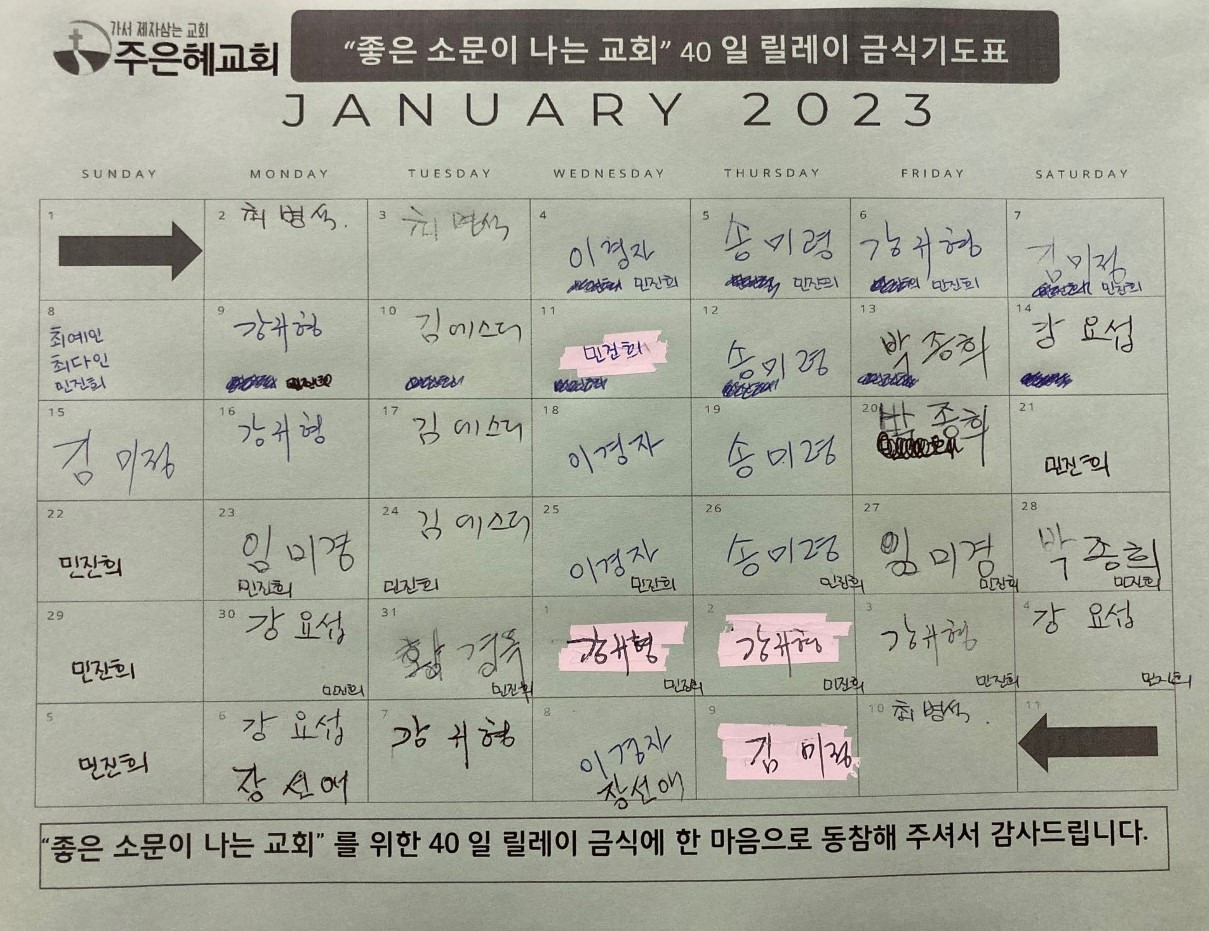 가서 제자삼는 교회
주은혜교회
“좋은 소문이 나는 교회” 40 일 릴레이 금식기도표
JANUARY 2023
SUNDAY MONDAY TUESDAY WEDNESDAY THURSDAY FRIDAY SATURDAY
1
2 최병석.
3 최병석
4
이경자
민진희
5
송미령
민진희
6
강귀형
민진희
7
김미정
민진희
8
최예인
최다인
민진희
9
강귀형
민진희
10
김에스더
11
민진희
12
송미령
13
박종희
14
강요섭
15
김미정
16
강귀형
17
김에스더
18
이경자
19
송미령
20
박종희
21
민진희
22
민진희
23
임미경
민진희
24
김에스더
민진희
25
이경자
민진희
26
송미령
민진희
27
임미경
민진희
28
박종희
민진희
29
민진희
30
강요섭
민진희
31
황경옥
민진희
1
강귀형
민진희
2
강귀형
민진희
3
강귀형
민진희
4
강요섭
민진희
5
민진희
6
강요섭
장선애
7
강귀형
8
이경자
장선애
9
김미정
10 최병석.
11
“좋은 소문이 나는 교회” 를 위한 40 일 릴레이 금식에 한 마음으로 동참해 주셔서 감사드립니다.